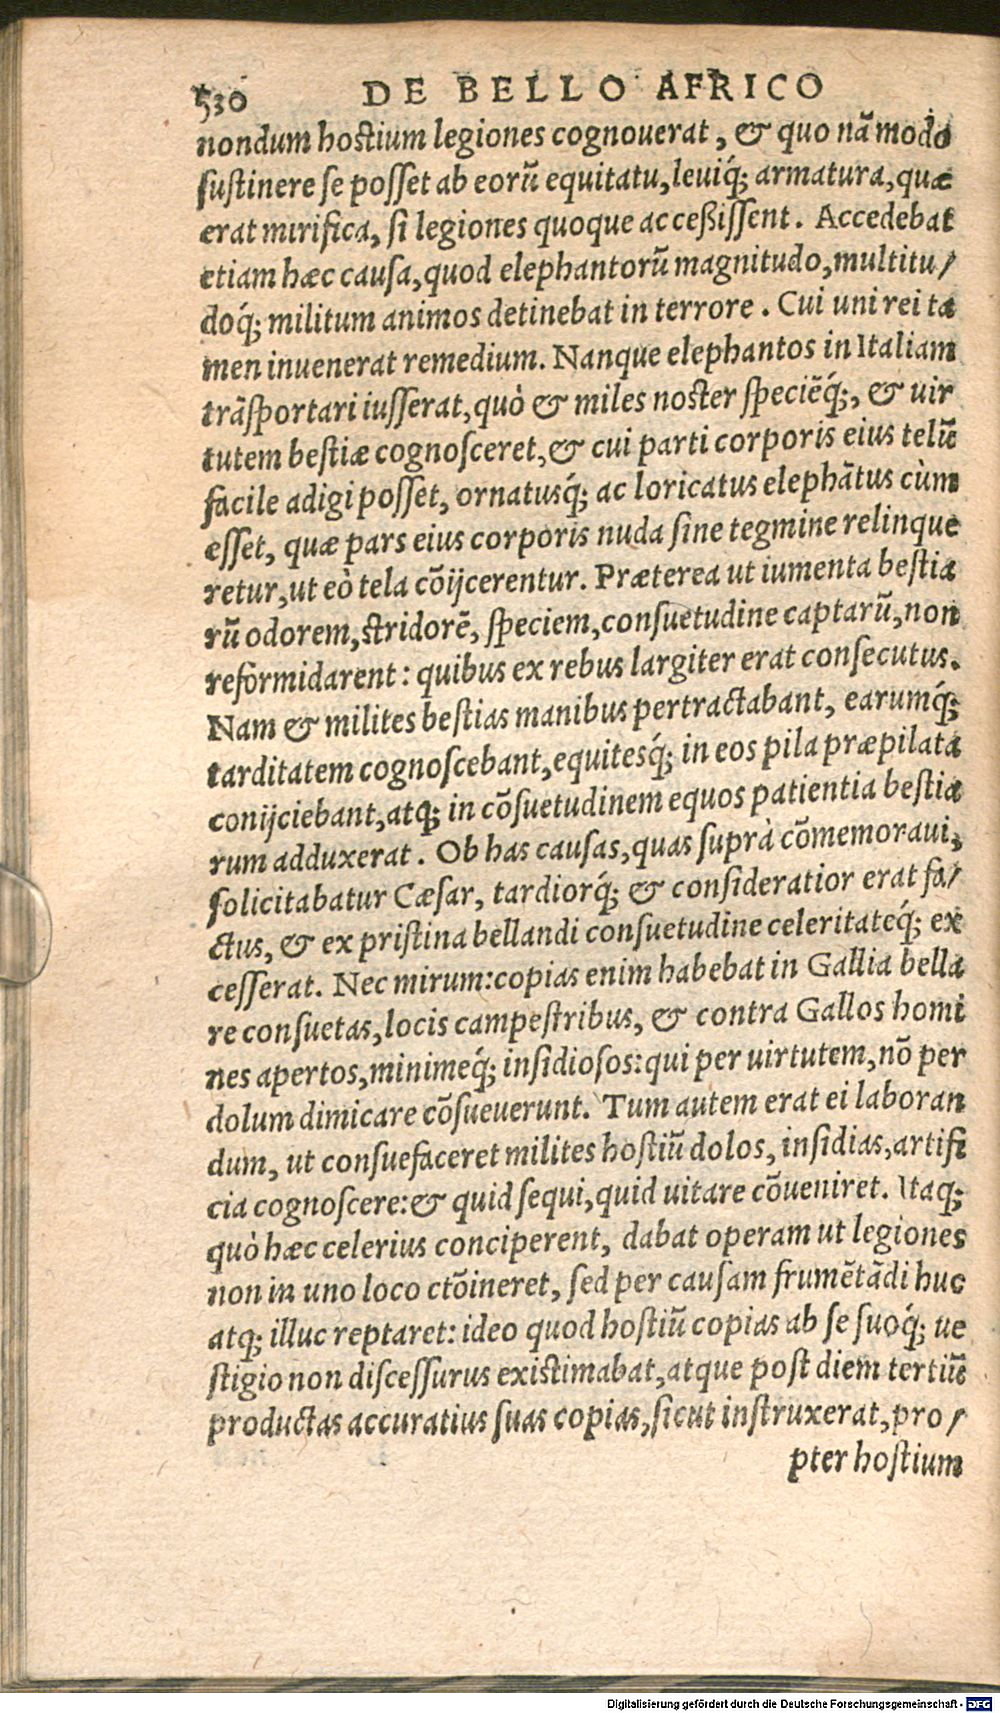 530 DE BELLO AFRICO
nondum hostium legiones cognouerat, & quo nā modo
sustinere se posset ab eorū equitatu, leuiq́; armatura, quæ
erat mirifica, si legiones quoque acceßissent. Accedebat
etiam hæc causa, quod elephantorū magnitudo, multitu/
doq́; militum animos detinebat in terrore. Cui uni rei ta
men inuenerat remedium. Nanque elephantos in Italiam
trāsportari iusserat, quò & miles noster speciēq́;, & uir
tutem bestiæ cognosceret, & cui parti corporis eius telū
facile adigi posset, ornatusq́; ac loricatus elephātus cùm
esset, quæ pars eius corporis nuda sine tegmine relinque
retur, ut eò tela cōijcerentur. Præterea ut iumenta bestia
rū odorem, stridorē, speciem, consuetudine captarū, non
reformidarent: quibus ex rebus largiter erat consecutus.
Nam & milites bestias manibus pertractabant, earumq́;
tarditatem cognoscebant, equitesq́; in eos pila præpilata
conijciebant, atq; in cōsuetudinem equos patientia bestia
rum adduxerat. Ob has causas, quas suprà cōmemoraui,
solicitabatur Cæsar, tardiorq́; & consideratior erat fa/
ctus, & ex pristina bellandi consuetudine celeritateq́; ex
cesserat. Nec mirum: copias enim habebat in Gallia bella
re consuetas, locis campestribus, & contra Gallos homi
nes apertos, minimeq́; insidiosos: qui per uirtutem, nō per
dolum dimicare cōsueuerunt. Tum autem erat ei laboran
dum, ut consuefaceret milites hostiū dolos, insidias, artifi
cia cognoscere: & quid sequi, quid uitare cōueniret. Itaq;
quò hæc celerius conciperent, dabat operam ut legiones
non in uno loco ctōineret, sed per causam frumētādi huc
atq; illuc reptaret: ideo quod hostiū copias ab se suoq́; ue
stigio non discessurus existimabat, atque post diem tertiū
productas accuratius suas copias, sicut instruxerat, pro/
pter hostium
Digitalisierung gefördert durch die Deutsche Forschungsgemeinschaft - DFG